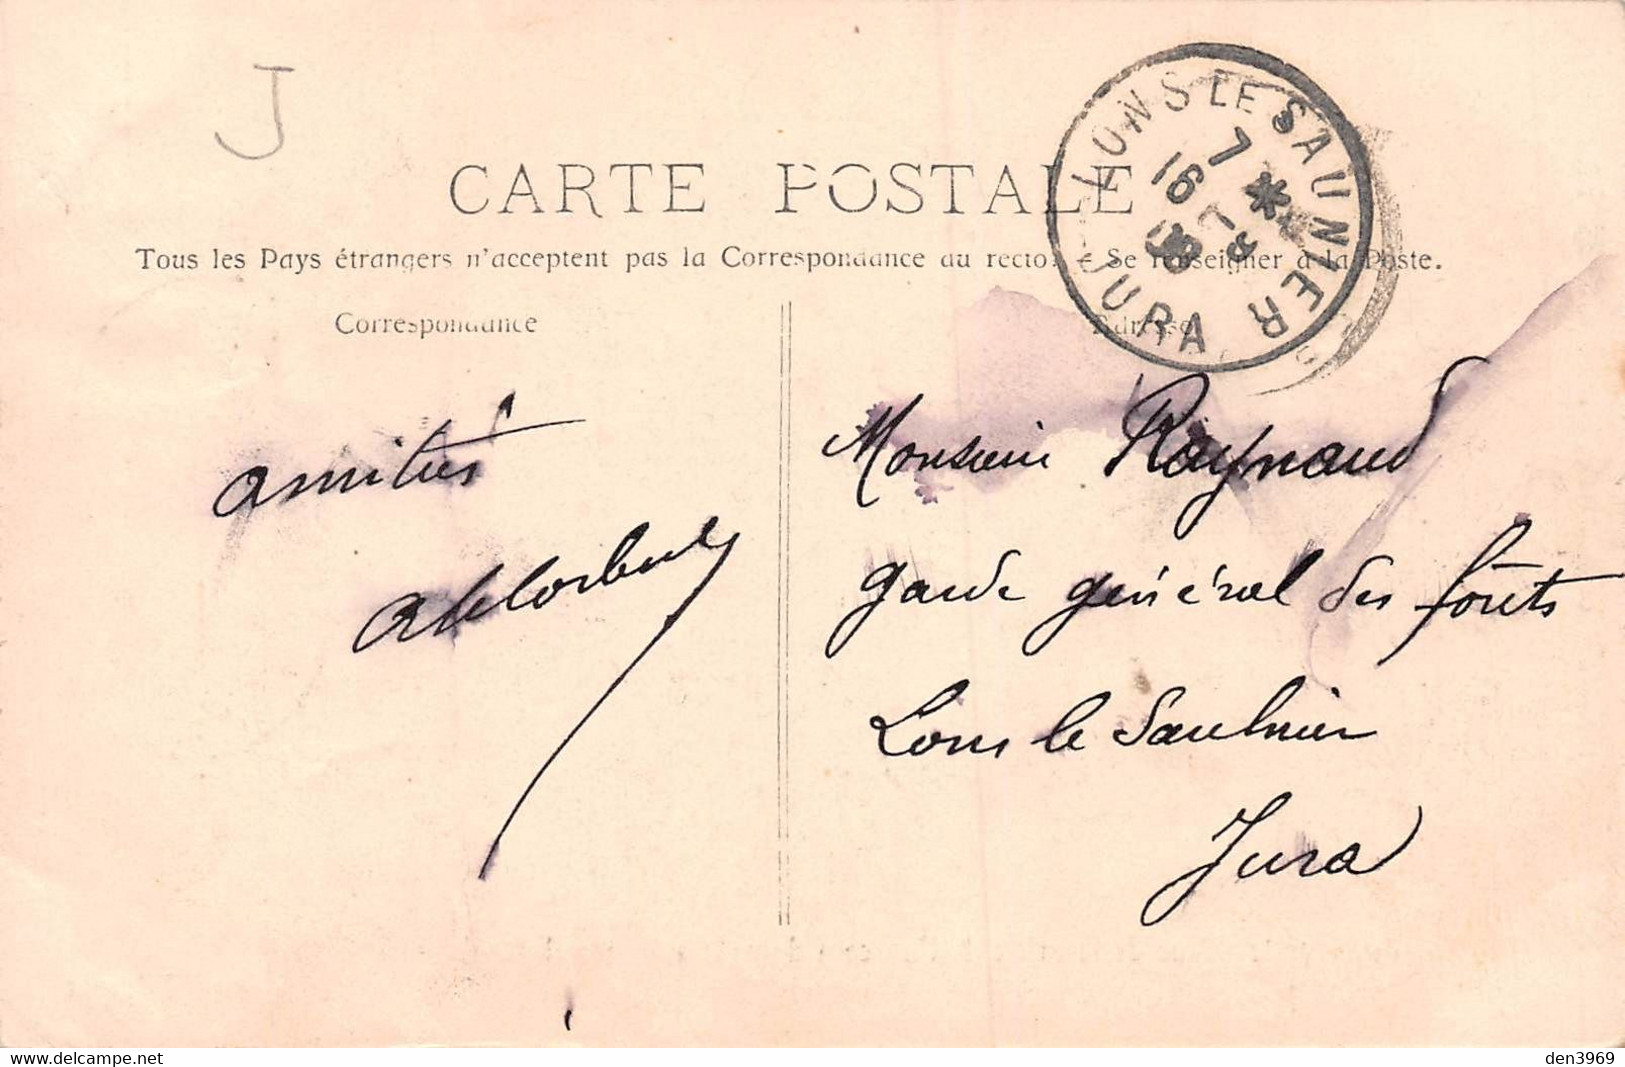 J
CARTE POSTALE
LONS LE SAUNIER
JURA
7 * 
16 7
Tous les Pays étrangers n'acceptent pas la Correspondance au recto. - Se renseigner à la Poste.
Correspondance
Adresse
amitiés
Monsieur Raynaud
garde général des forêts
Lons le Saulnier
Jura
den3969